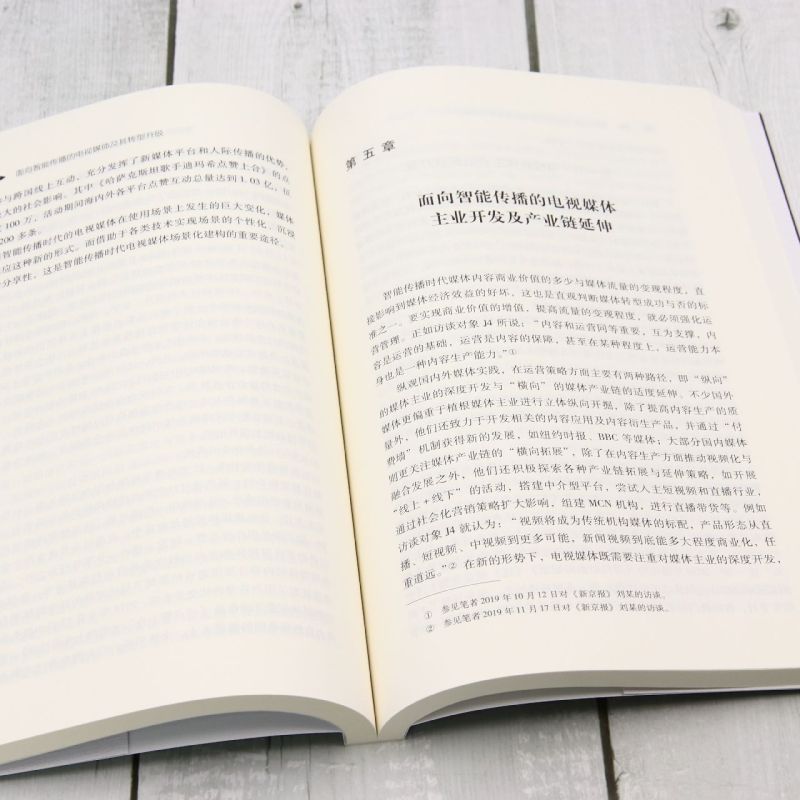 面向智能传播的电视媒体及其转型升级
与跨国线上互动，充分发挥了新媒体平台和人际传播的优势，
大的社会影响。其中《哈萨克斯坦歌手迪玛希点赞上合》的点
100 万，活动期间海内外各平台点赞互动总量达到 1.03 亿，
200 多条。
智能传播时代的电视媒体在使用场景上发生的巨大变化，媒体
应这种新的形式。而借助于各类技术实现场景的个性化、沉浸
分享性，这是智能传播时代电视媒体场景化建构的重要途径。
第五章
面向智能传播的电视媒体
主业开发及产业链延伸
智能传播时代媒体内容商业价值的多少与媒体流量的变现程度，直
接影响到媒体经济效益的好坏，这也是直观判断媒体转型成功与否的标
准之一。要实现商业价值的增值，提高流量的变现程度，就必须强化运
营管理。正如访谈对象 J4 所说：“内容和运营同等重要，互为支撑，内
容是运营的基础，运营是内容的保障，甚至在某种程度上，运营能力本
身也是一种内容生产能力。”①
纵观国内外媒体实践，在运营策略方面主要有两种路径，即“纵向”
的媒体主业的深度开发与“横向”的媒体产业链的适度延伸。不少国外
媒体更偏重于植根媒体主业进行立体纵向开掘，除了提高内容生产的质
量外，他们还致力于开发相关的内容应用及内容衍生产品，并通过“付
费墙”机制获得新的发展，如纽约时报、BBC 等媒体；大部分国内媒体
则更关注媒体产业链的“横向拓展”，除了在内容生产方面推动视频化与
融合发展之外，他们还积极探索各种产业链拓展与延伸策略，如开展
“线上 + 线下”的活动，搭建中介型平台，尝试入主短视频和直播行业，
通过社会化营销策略扩大影响，组建 MCN 机构，进行直播带货等。例如
访谈对象 J4 就认为：“视频将成为传统机构媒体的标配，产品形态从直
播、短视频、中视频到更多可能，新闻视频到底能多大程度商业化，任
重道远。”② 在新的形势下，电视媒体既需要注重对媒体主业的深度开发，
① 参见笔者 2019 年 10 月 12 日对《新京报》刘某的访谈。
② 参见笔者 2019 年 11 月 17 日对《新京报》刘某的访谈。